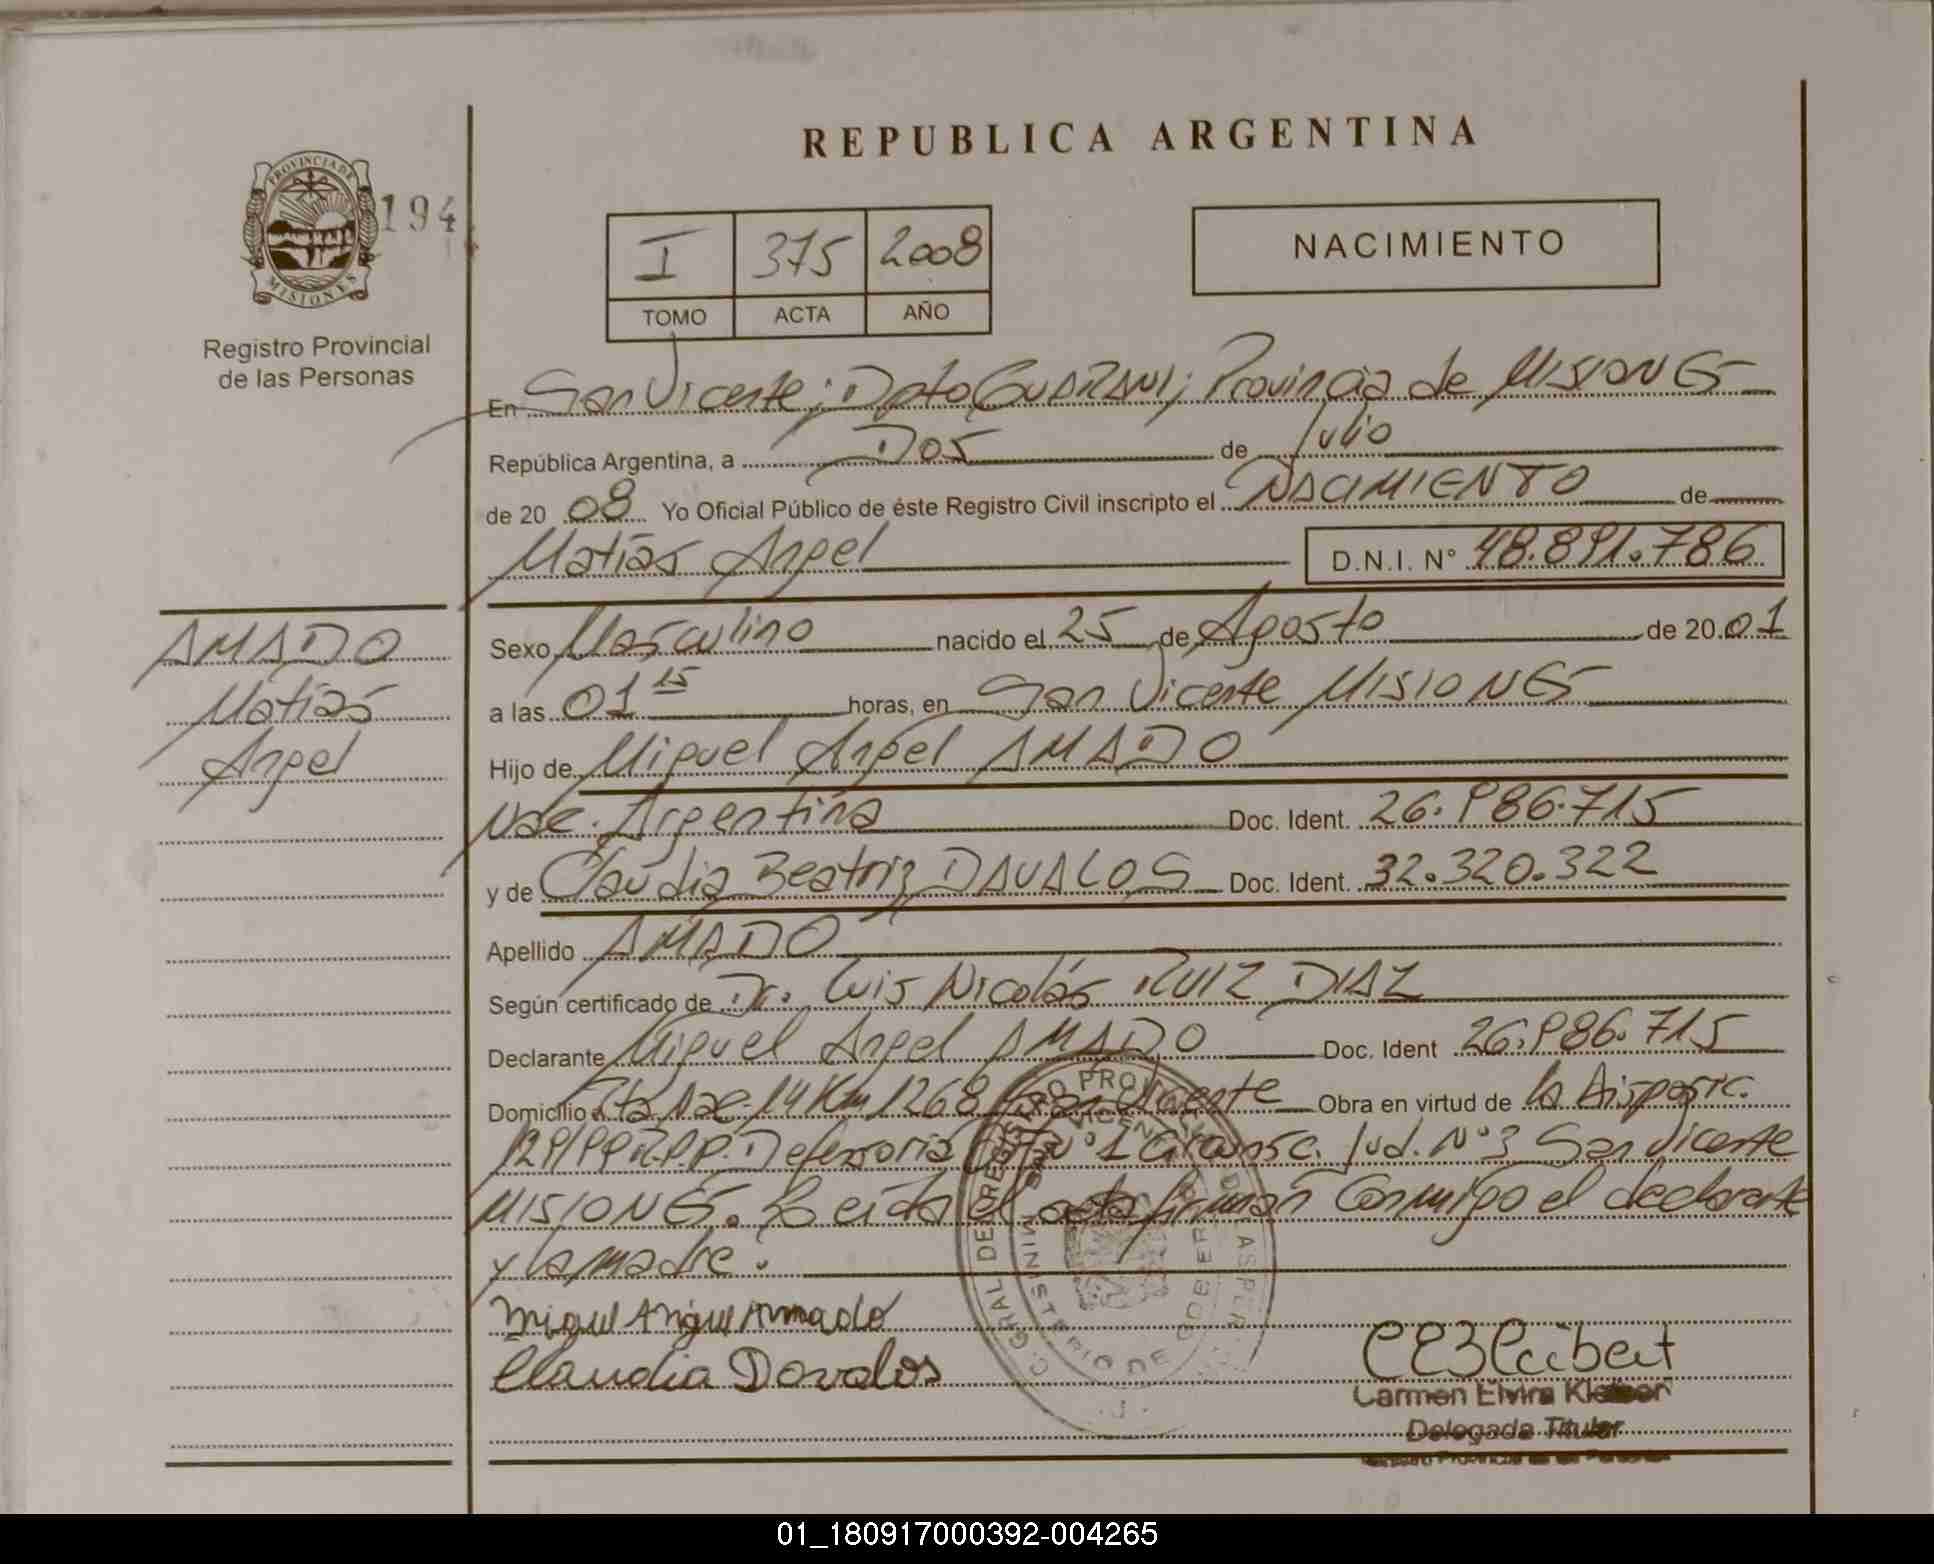 REPUBLICA ARGENTINA
PROVINCIA DE
MISIONES
194
Registro Provincial
de las Personas
I 375 2008
TOMO ACTA AÑO
NACIMIENTO
En San Vicente; Dpto GUARANI; Provincia de MISIONES
República Argentina, a Dos de Julio
de 2008 Yo Oficial Público de éste Registro Civil inscripto el NACIMIENTO de
Matías Angel D.N.I. N° 48.891.786
AMADO
Matías
Angel
Sexo Masculino nacido el 25 de Agosto de 2001
a las 01 15 horas, en San Vicente MISIONES
Hijo de Miguel Angel AMADO
Nac. Argentina Doc. Ident. 26.986.715
y de Claudia Beatriz DAVALOS Doc. Ident. 32.320.322
Apellido AMADO
Según certificado de Dr. Luis Nicolás RUIZ DIAZ
Declarante Miguel Angel AMADO Doc. Ident 26.986.715
Domicilio Rta Nac. 14 Km 1268 San Vicente Obra en virtud de la Disposic.
Defensoria N°1 Circunsc. Jud. N°3 San Vicente
MISIONES. Leída el acta firman conmigo el declarante
y la madre.
Miguel Angel Amado
Claudia Davalos
Carmen Elvira
Delegada Titular
01_180917000392-004265